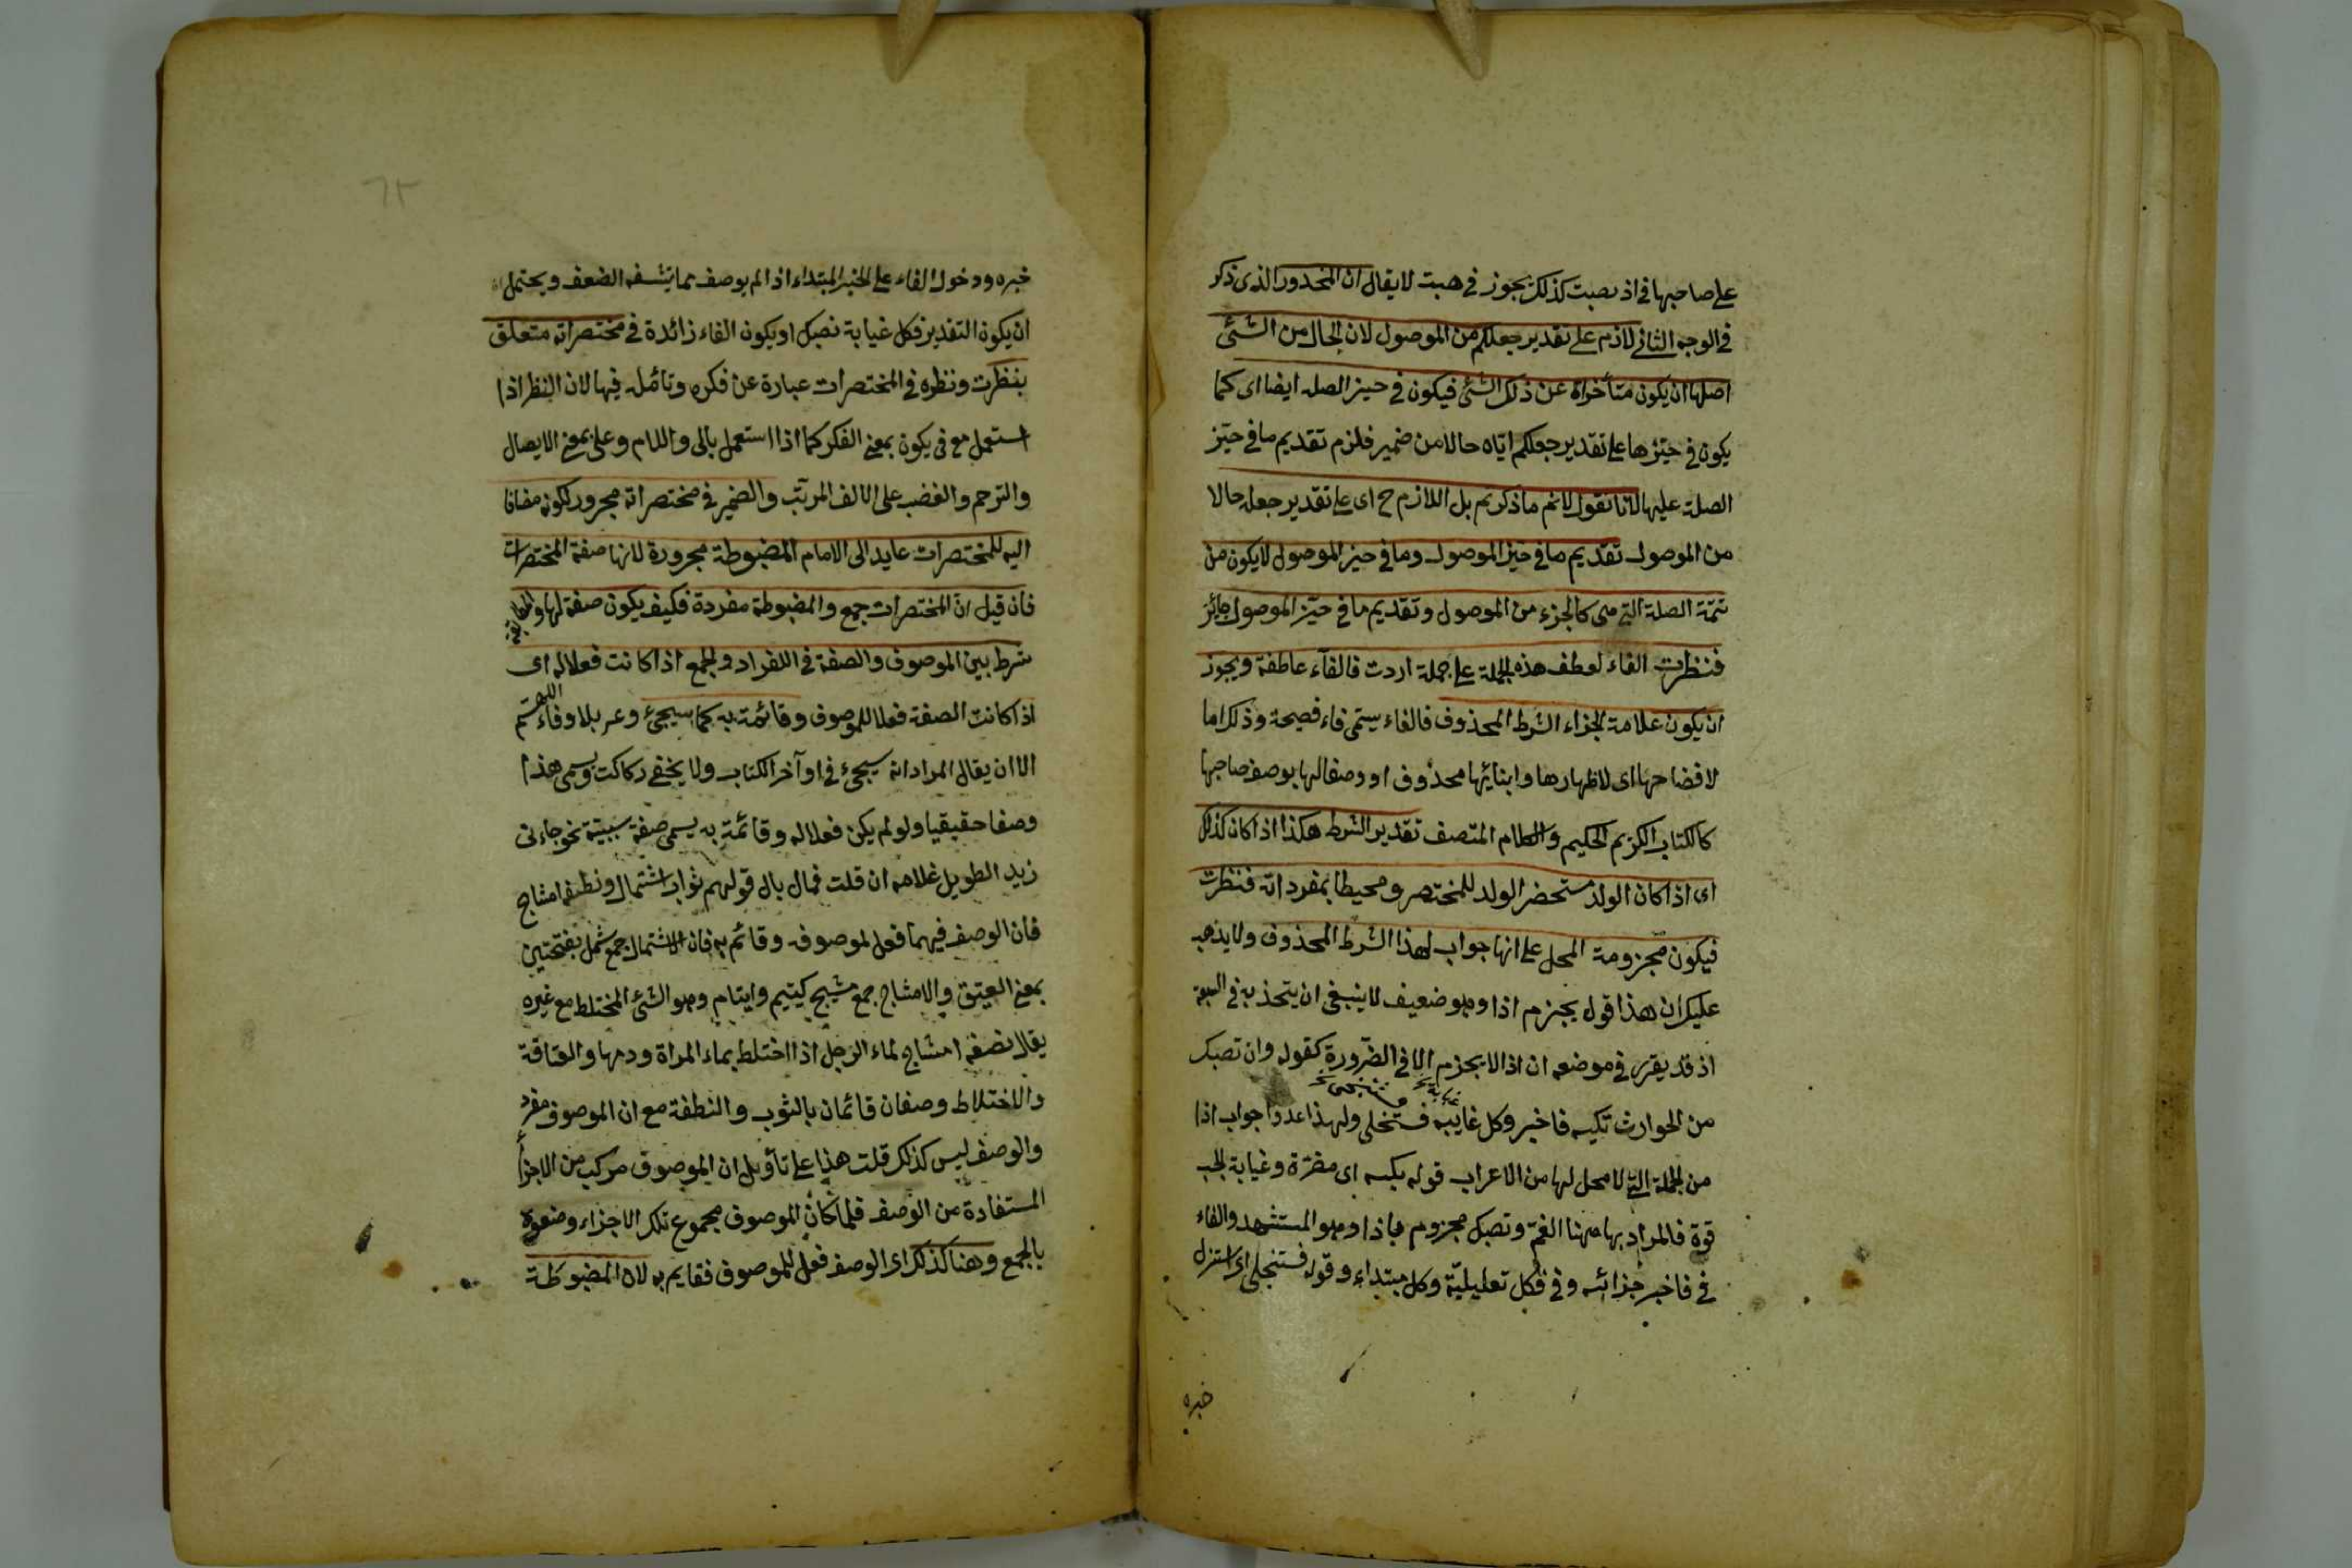 على صاحبها في اذ نصبت كذلك يجوز في هبت لا يقال ان المحذور الذى ذكر
في الوجه الثانى لازم على تقدير جعلكم من الموصول لان الحال من الشئ
اصلها ان يكون متأخراة عن ذلك الشئ فيكون في حيز الصله ايضا اى كما
يكون في حيّزها على تقدير جعلكم ايّاه حالا من ضمير فلزم تقديم ما في حيّز
الصلة عليها لانا نقول لانم ما ذكرتم بل اللازم ح اى على تقدير جعله حالا
من الموصول تقديم ما في حيّز الموصول وما في حيز الموصول لا يكون من
تتمّة الصلة التى هى كالجزء من الموصول وتقديم ما في حيّز الموصول جائز
فنظرت الفاء لعطف هذه الجملة على جملة اردت فالفآء عاطفة ويجوز
ان يكون علامة لجزاء الشرط المحذوف فالفاء يسمّى فاء فصيحة وذلك اما
لافضاحها اى لاظهارها وابنائها محذوف او وصفا لها بوصف صاحبها
كالكتاب الكريم الحكيم والكلام المتصف تقدير الشرط هكذا اذا كان كذلك
اى اذا كان الولد مستحضر الولد للمختصر ومحيطا بمفرداته فنظرت
فيكون مجزومة المحل على انها جواب لهذا الشرط المحذوف ولا يذهب
عليك ان هذا قول بجزم اذا وهو ضعيف لا ينبغى ان يتخذ به في السعة
اذ قد يقرّر في موضعه ان اذا لا يجزم الا في الضّرورة كقوله وان تصبك
من الحوارث نكبه فاخبر وكل غايبه فستخلى ولهذا عدوا جواب اذا
من الجملة التى لا محل لها من الاعراب قوله نكبه اى مضرّة وغيابة الجب
قوة فالمراد بها ههنا الغمّ وتصبك مجزوم باذا وهو المستشهد والفاء
في فاخبر جزائه وفي فكل تعليليّة وكل مبتداء وقوله فستنجلى اى استزل
خبره
خبره ودخول الفاء على الخبر المبتداء اذا لم يوصف مما يشفه الضعف ويحتمل
ان يكون التقدير فكل غيابة نصبك او يكون الفاء زائدة في مختصراته متعلق
بنظرت ونظره في المختصرات عبارة عن فكره وتامّله فيها لان النظر اذا
استعمل مع في يكون بمعنى الفكر كما اذا استعمل بالى واللام وعلى بمعنى الايصال
والترحم والغضب على الالف المرتّب والضمير في مختصراته مجرور لكونه مضافا
اليه للمختصرات عايد الى الامام المضبوطة مجرورة لانها صفة المختصرات
فان قيل انّ المختصرات جمع والمضبوطة مفردة فكيف يكون صفة لها والمطابقة
شرط بين الموصوف والصفة في اللفراد ولجمع اذا كانت فعلا له اى
اذا كانت الصفة فعلا للموصوف وقائمة به كما سيجئ وعر بلا وفاء اللهم
الا ان يقال المراد انه سيجئ في اوآخر الكتاب ولا يخفى ركاكت ويسمى هذا
وصفا حقيقيا ولو لم يكن فعلا له وقائمة به يسمى صفة سببيّة نحو جاءنى
زيد الطويل غلامه ان قلت فمال بال قولهم ثواب اشتمال ونطفة امشاج
فان الوصف فيهما فعل لموصوف وقائم به فان الاشتمال جمع شمل بفتحتين
بمعنى العيتق والامشاج جمع مشيج كيتيم وايتام وهو الشئ المختلط مع غيره
يقال نصفة امشاج لماء الرجل اذا اختلط بماء المراة ودمها والعتاقة
والاختلاط وصفان قائمان بالثوب والنطفة مع ان الموصوف مفرد
والوصف ليس كذلك قلت هذا على تأويل ان الموصوف مركب من الاجزأ
المستفادة من الوصف فلما كان الموصوف مجموع تلك الاجزاء وصفوه
بالجمع وهنا كذلك اى الوصف فعل للموصوف فقايم به لان المضبوطة